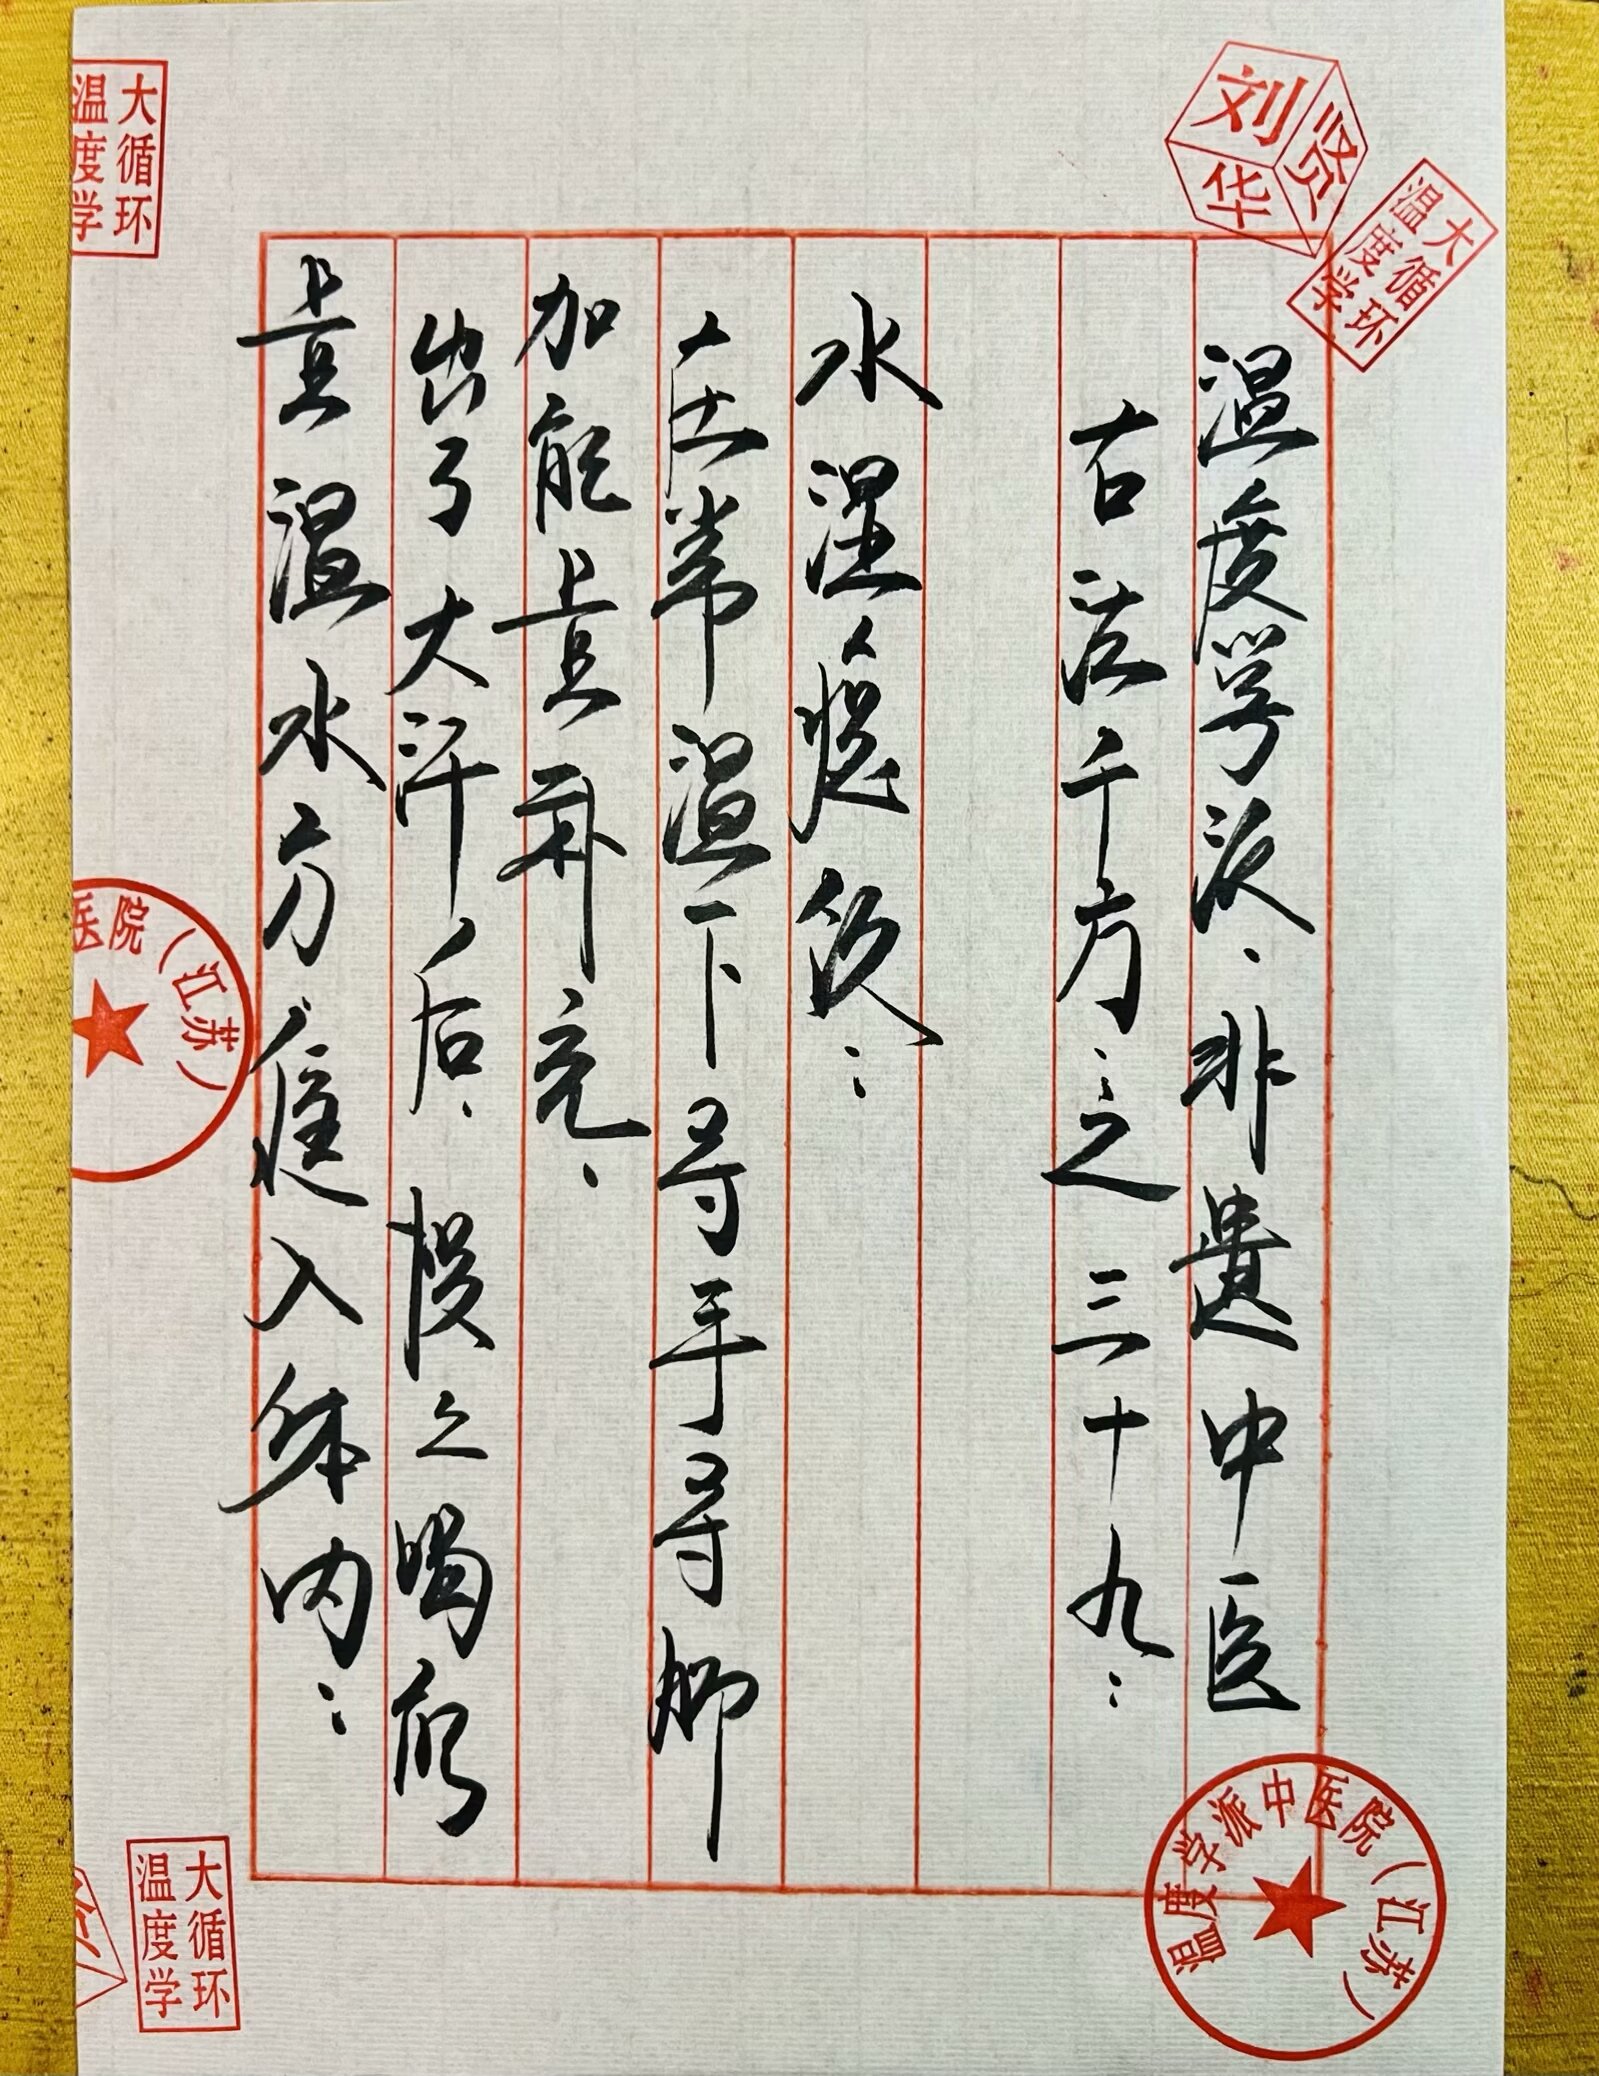 刘贤华
大循环
温度学
温度学派、非遗中医
古法千方之三十九：
水湿
在常温下导手导脚
加能量补充、
出了大汗后、慢之喝能
量温水方入体内：
大循环
温度学
医院（江苏）
大循环
温度学
温度学派中医院（江苏）